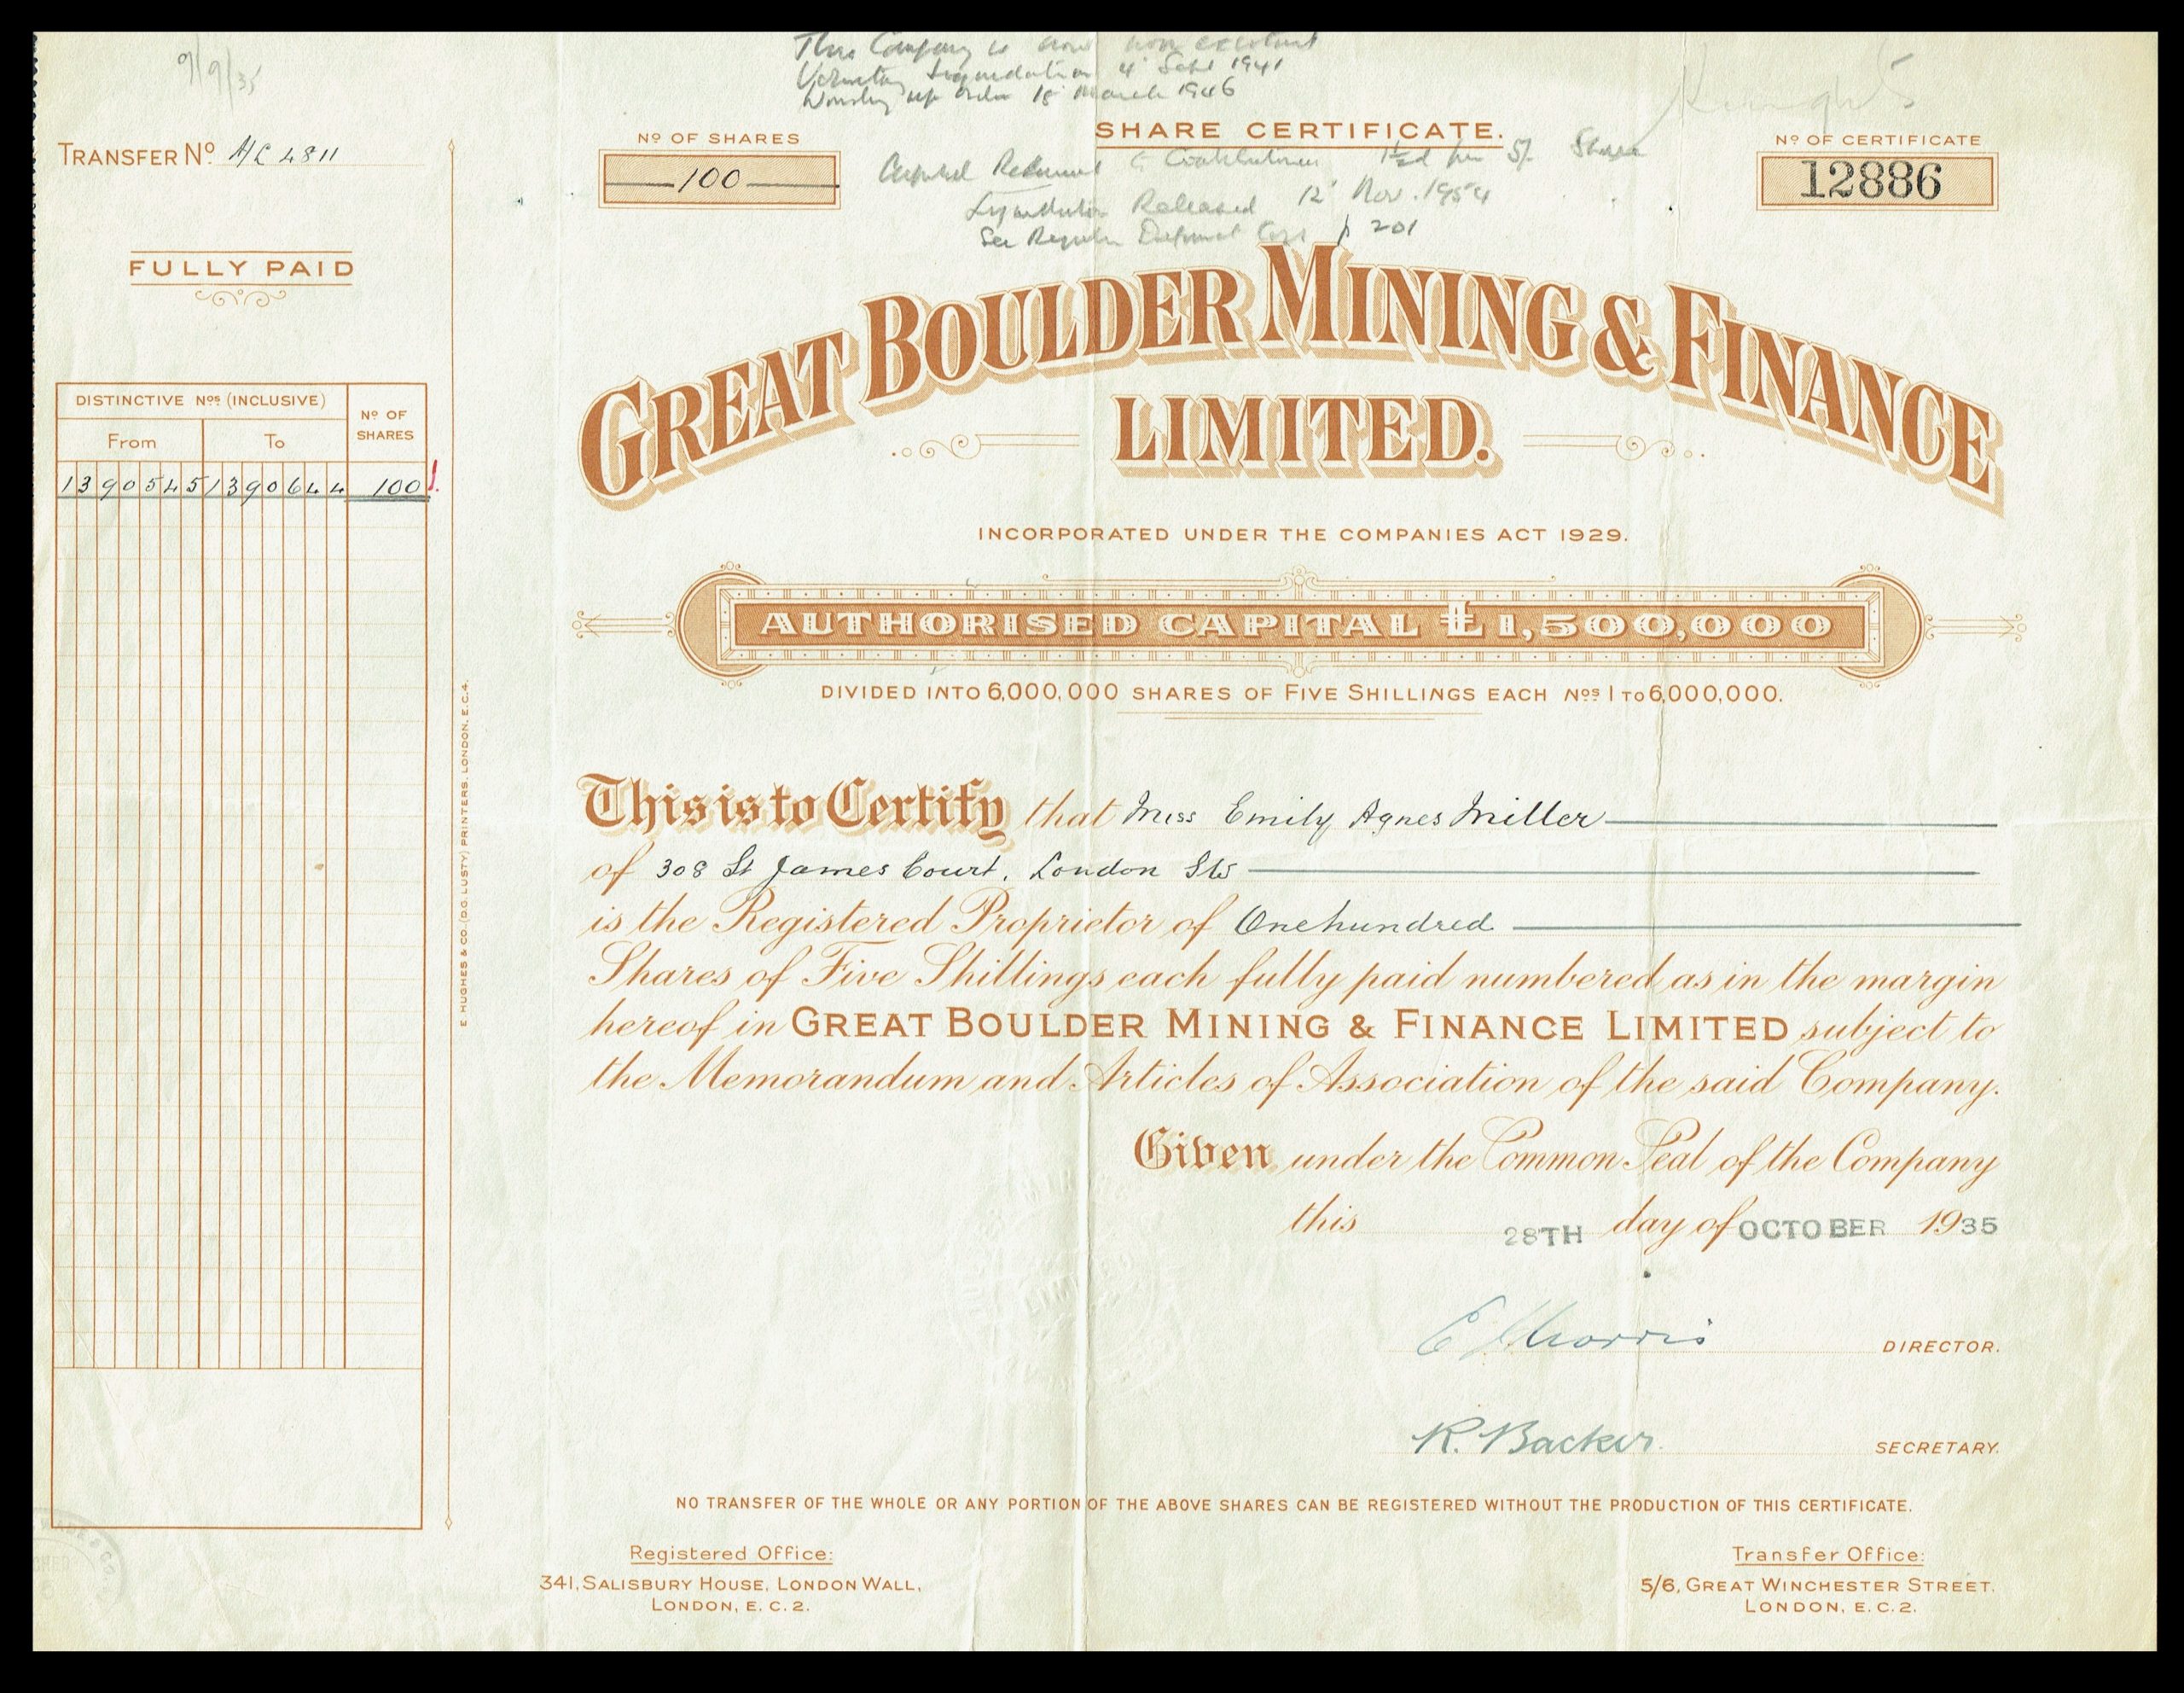 9/9/35
This Company is now non existent
Voluntary Liquidation 4 Sept 1941
Winding up order 18 March 1946
Knights
TRANSFER Nº A/C 4811
Nº OF SHARES
100
SHARE CERTIFICATE.
Nº OF CERTIFICATE
12886
Capital Returned to Contributories 1½d per 5/- Share
Liquidator Released 12 Nov. 1954
See Register Defunct Cos p 201
FULLY PAID
GREAT BOULDER MINING & FINANCE
LIMITED.
DISTINCTIVE Nos (INCLUSIVE)
Nº OF SHARES
From To
1390545 1390644 100
INCORPORATED UNDER THE COMPANIES ACT 1929.
AUTHORISED CAPITAL £1,500,000
DIVIDED INTO 6,000,000 SHARES OF FIVE SHILLINGS EACH Nos 1 TO 6,000,000.
E. HUGHES & CO. (D.G. LUSTY) PRINTERS. LONDON. E.C.4.
This is to Certify that Miss Emily Agnes Miller
of 308 St James Court, London SW
is the Registered Proprietor of One hundred
Shares of Five Shillings each fully paid numbered as in the margin
hereof in GREAT BOULDER MINING & FINANCE LIMITED subject to
the Memorandum and Articles of Association of the said Company.
Given under the Common Seal of the Company
this 28TH day of OCTOBER 1935
LIMITED
Morris DIRECTOR.
R. Backer SECRETARY.
NO TRANSFER OF THE WHOLE OR ANY PORTION OF THE ABOVE SHARES CAN BE REGISTERED WITHOUT THE PRODUCTION OF THIS CERTIFICATE.
Registered Office:
341, SALISBURY HOUSE, LONDON WALL,
LONDON, E.C.2.
Transfer Office:
5/6, GREAT WINCHESTER STREET.
LONDON, E.C.2.